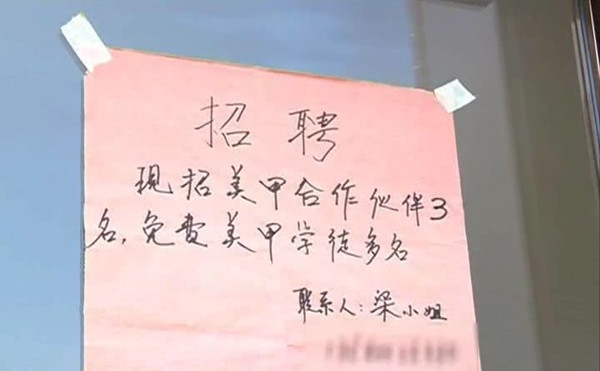 招聘
现招美甲合作伙伴3
名，免费美甲学徒多名
联系人：梁小姐